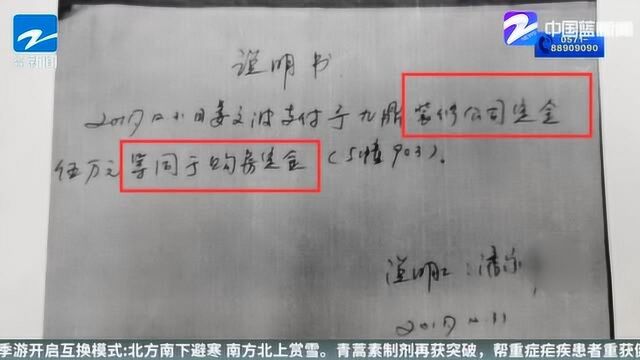 新闻
中国蓝新闻
0571-
88909090
说明书
支付于九鼎装修公司定金
伍万元等同于购房定金(5幢903)。
说明人:
季游开启互换模式:北方南下避寒 南方北上赏雪。青蒿素制剂再获突破，帮重症疟疾患者重获